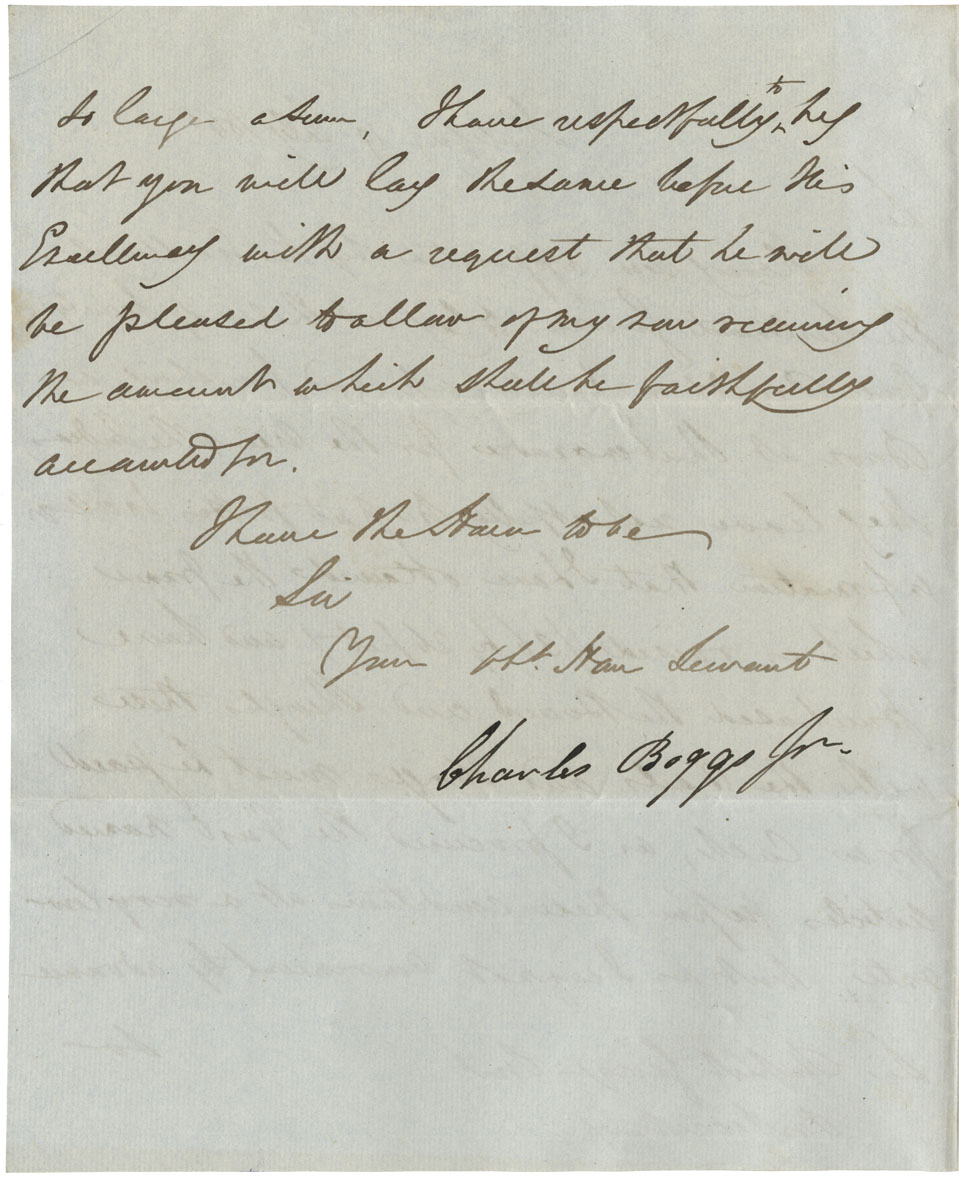 so large a sum, I have respectfully to beg
that you will lay the same before His
Excellency with a request that he will
be pleased to allow of my son receiving
the amount which shall be faithfully
accounted for.
I have the Honor to be
Sir
Your Obt. Hon Servant
Charles Boggs Jr.